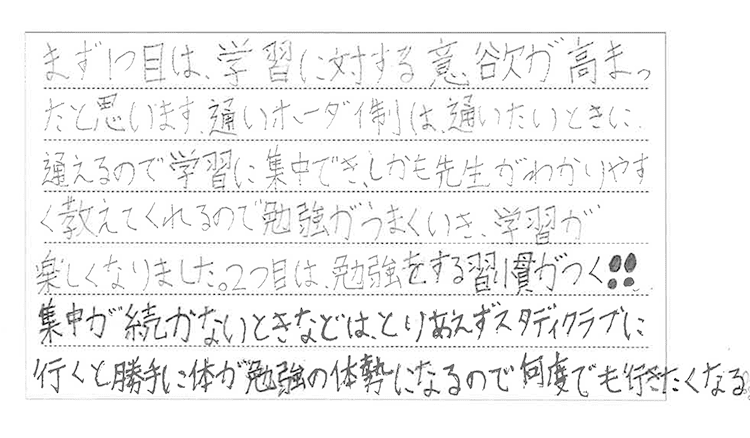 まず1つ目は、学習に対する意欲が高まっ
たと思います。通いホーダイ制は、通いたいときに
通えるので学習に集中でき、しかも先生がわかりやす
く教えてくれるので勉強がうまくいき、学習が
楽しくなりました。2つ目は、勉強をする習慣がつく!!
集中が続かないときなどは、とりあえずスタディクラブに
行くと勝手に体が勉強の体勢になるので何度でも行きたくなる